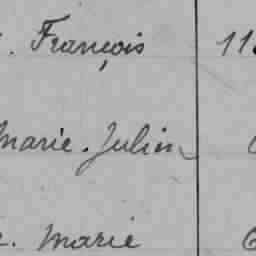 . François 11
Marie. Julien
. Marie 6